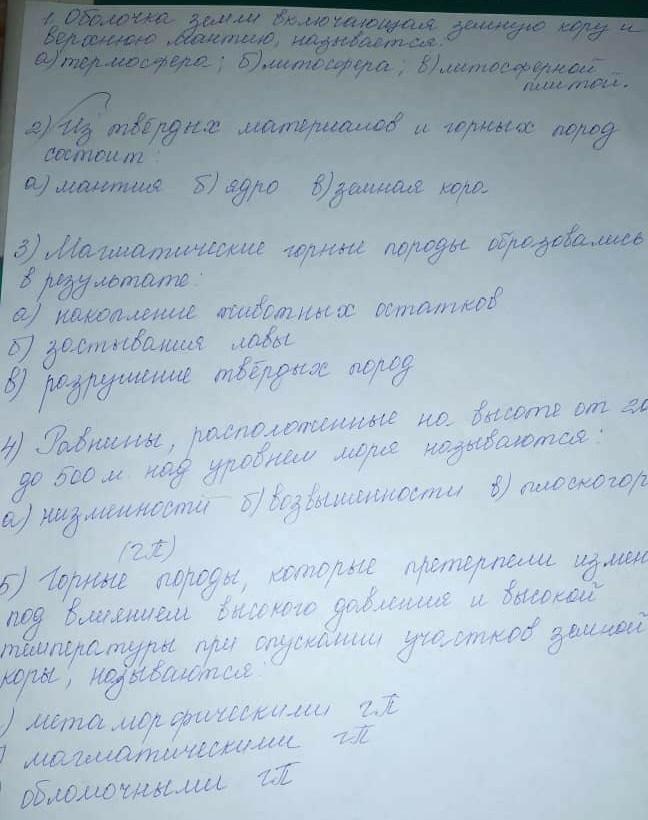 1. Оболочка земли включающая земную кору и
верхнюю мантию, называется:
а) термосфера; б) литосфера; в) литосферной
плитой.
2) Из твёрдых материалов и горных пород
состоит:
а) мантия б) ядро в) земная кора
3) Магматические горные породы образовались
в результате:
а) накопление животных остатков
б) застывания лавы
в) разрушение твёрдых пород
4) Равнины, расположенные на высоте от 20
до 500 м. над уровнем моря называются:
а) низменности б) возвышенности в) плоскогор
(гП)
5) Горные породы, которые претерпели измен
под влиянием высокого давления и высокой
температуры при опускании участков земной
коры, называются:
) метаморфическими гП
) магматическими гП
) обломочными гП